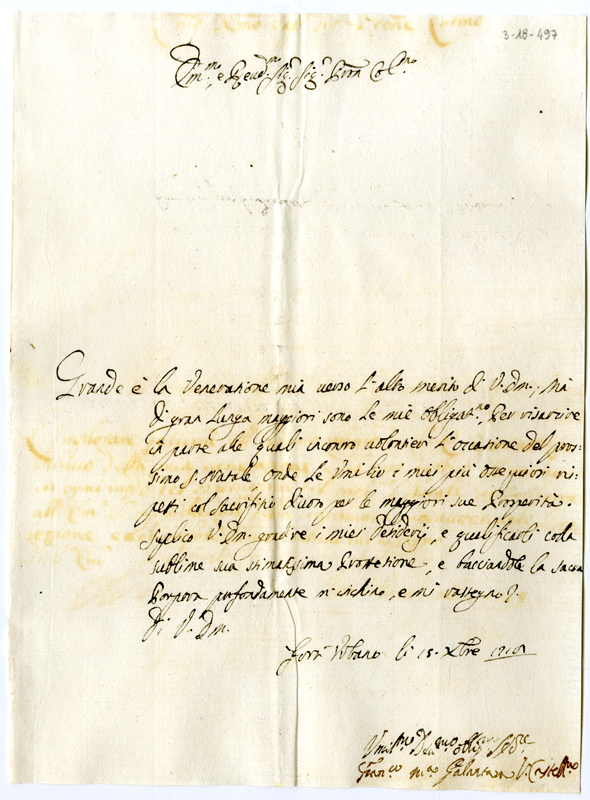 3-18-497
Em.mo, e Reud.mo Sig.r Sig.r Pron Col.mo
Grande è la Veneratione mia uerso L'alto merito di V. Em.; Mà
di gran Lunga maggiori sono Le mie obligat.ni, Per risarcire
in parte alle quali incontro uolontieri L'occasione del pros:
simo S. Natale onde Le Umilio i miei più ossequiosi ris:
petti col sacrifitio diuoti per le maggiori sue Prosperità.
Suplico V. Em. gradire i miei Desiderij, e qualificarli colla
sublime sua stimatissima Protetione, e bacciandole la sacra
Porpora profondamente m'inchino, e mi rassegno
Di V. Em.
Forte Urbano li 15. Xbre
Umil.mo Deu.mo Obblig.mo Ser.re
Fran.co M.a Galantara V. Castell.no